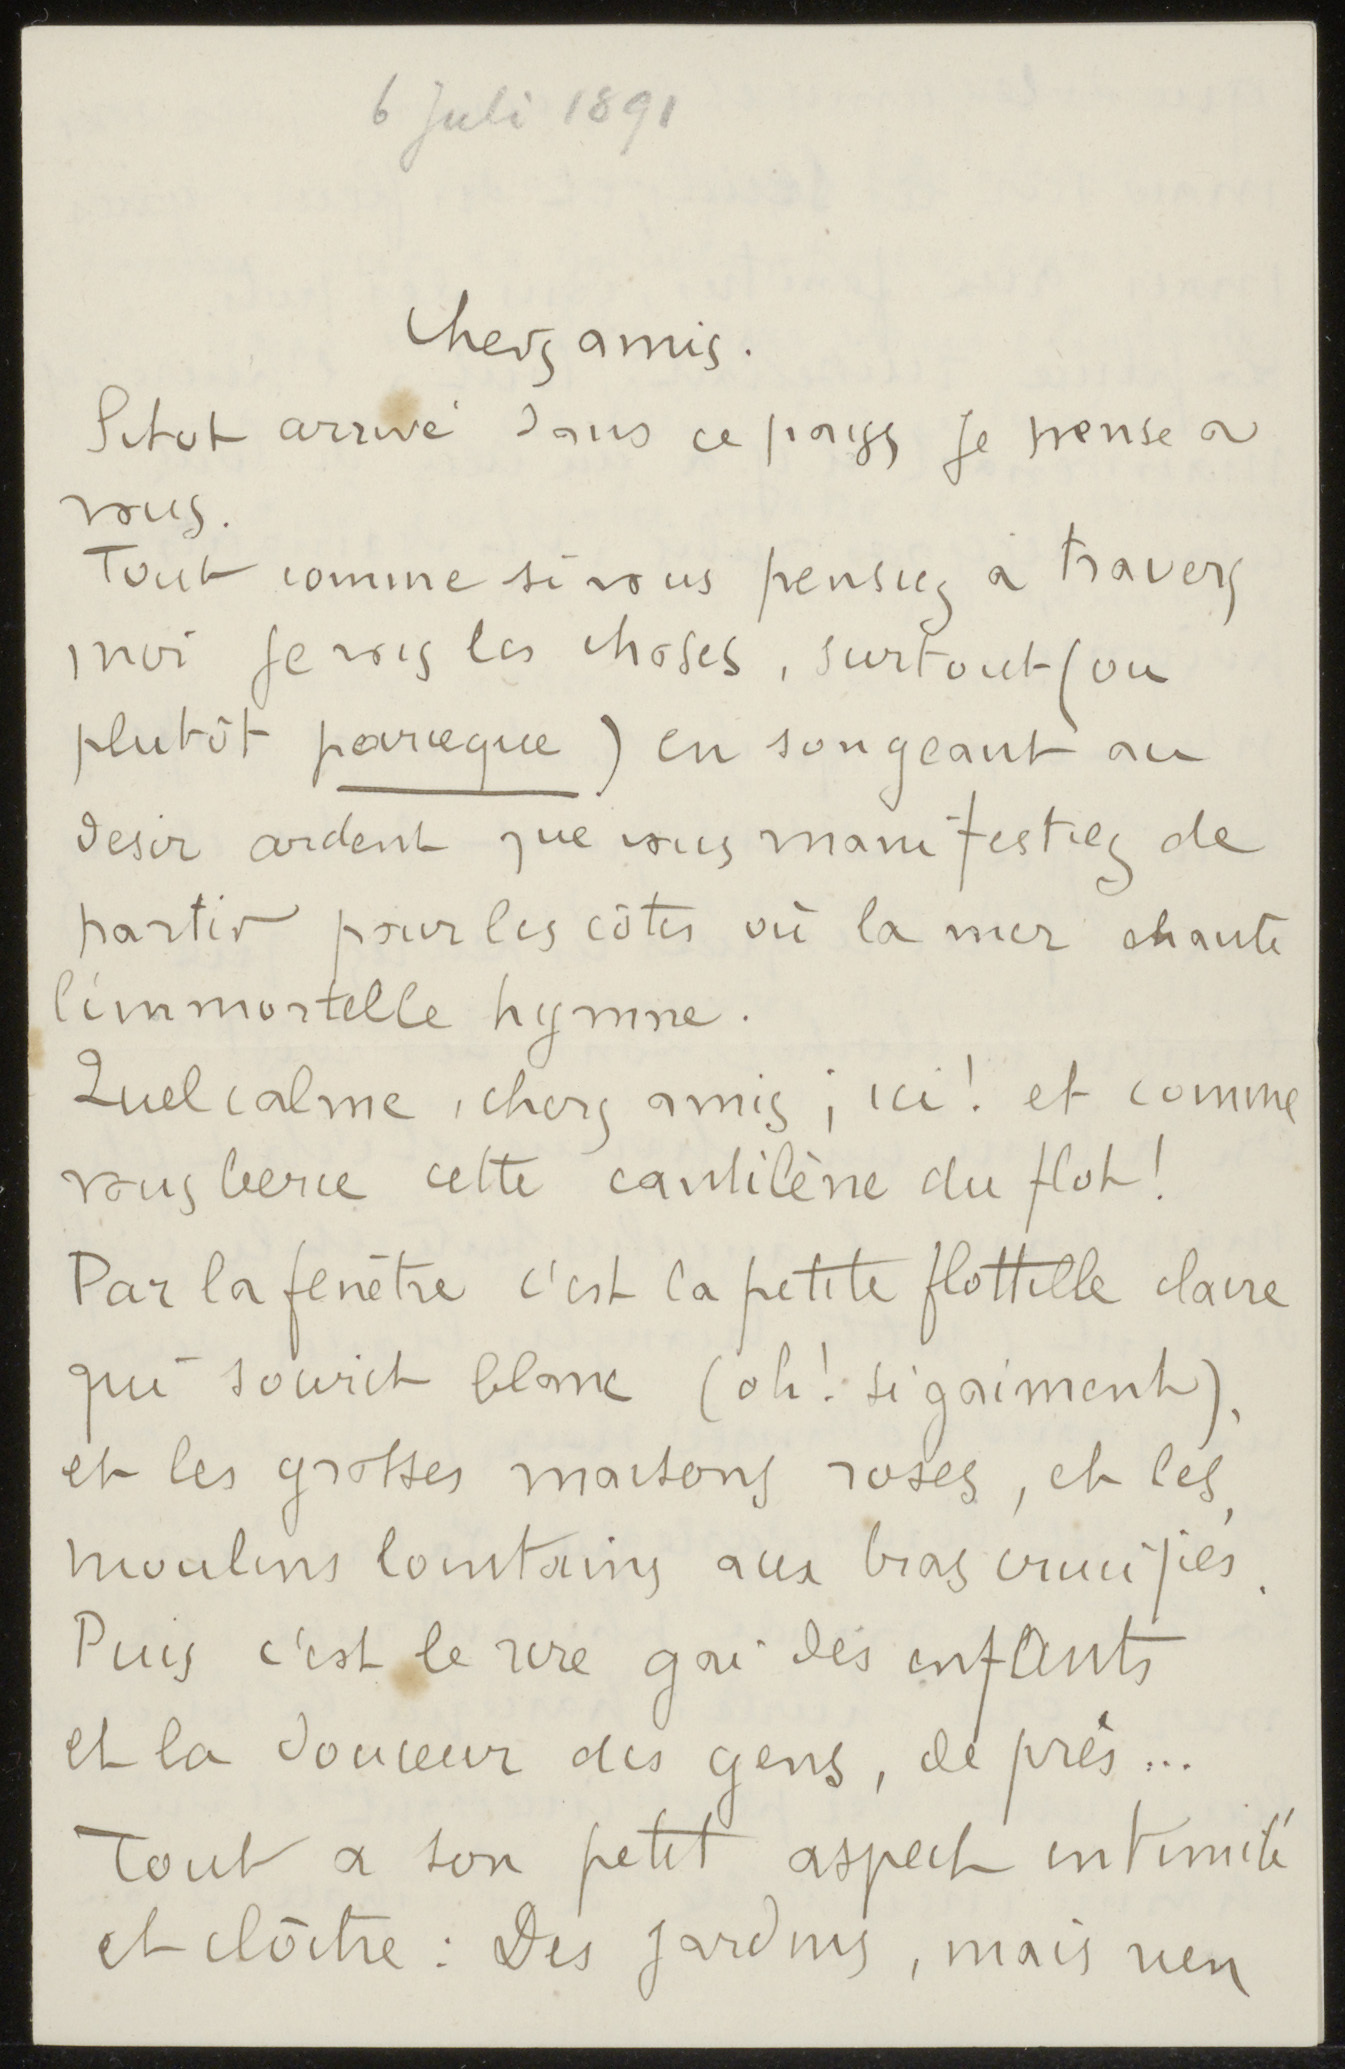 6 Juli 1891
Chers amis.
Sitot arrivé dans ce pays, je pense a
vous.
Tout comme si vous pensiez a travers
moi je vois les choses, surtout (ou
plutôt parceque) en songeant au
desir ardent que vous manifestiez de
partir pour les côtes où la mer chante
l'immortelle hymne.
Quel calme, chers amis, ici! et comme
vous berce cette cantilène du flot!
Par la fenêtre c'est la petite flottille claire
qui sourit blanc (oh! si gaiment),
et les grosses maisons roses, et les
moulins lointains aux bras crucifiés.
Puis c'est le rire gai des enfants
et la douceur des gens, de près...
Tout a son petit aspect intimité
et cloître: Des jardins, mais rien